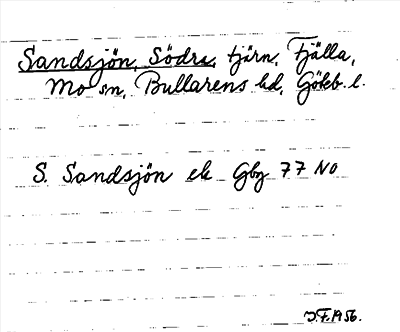 Sandsjön, Södra, tjärn, Fjälla,
Mo sn, Bullarens hd, Göteb. l.
S. Sandsjön ek Gbg 77 NO
J.F. 1956.